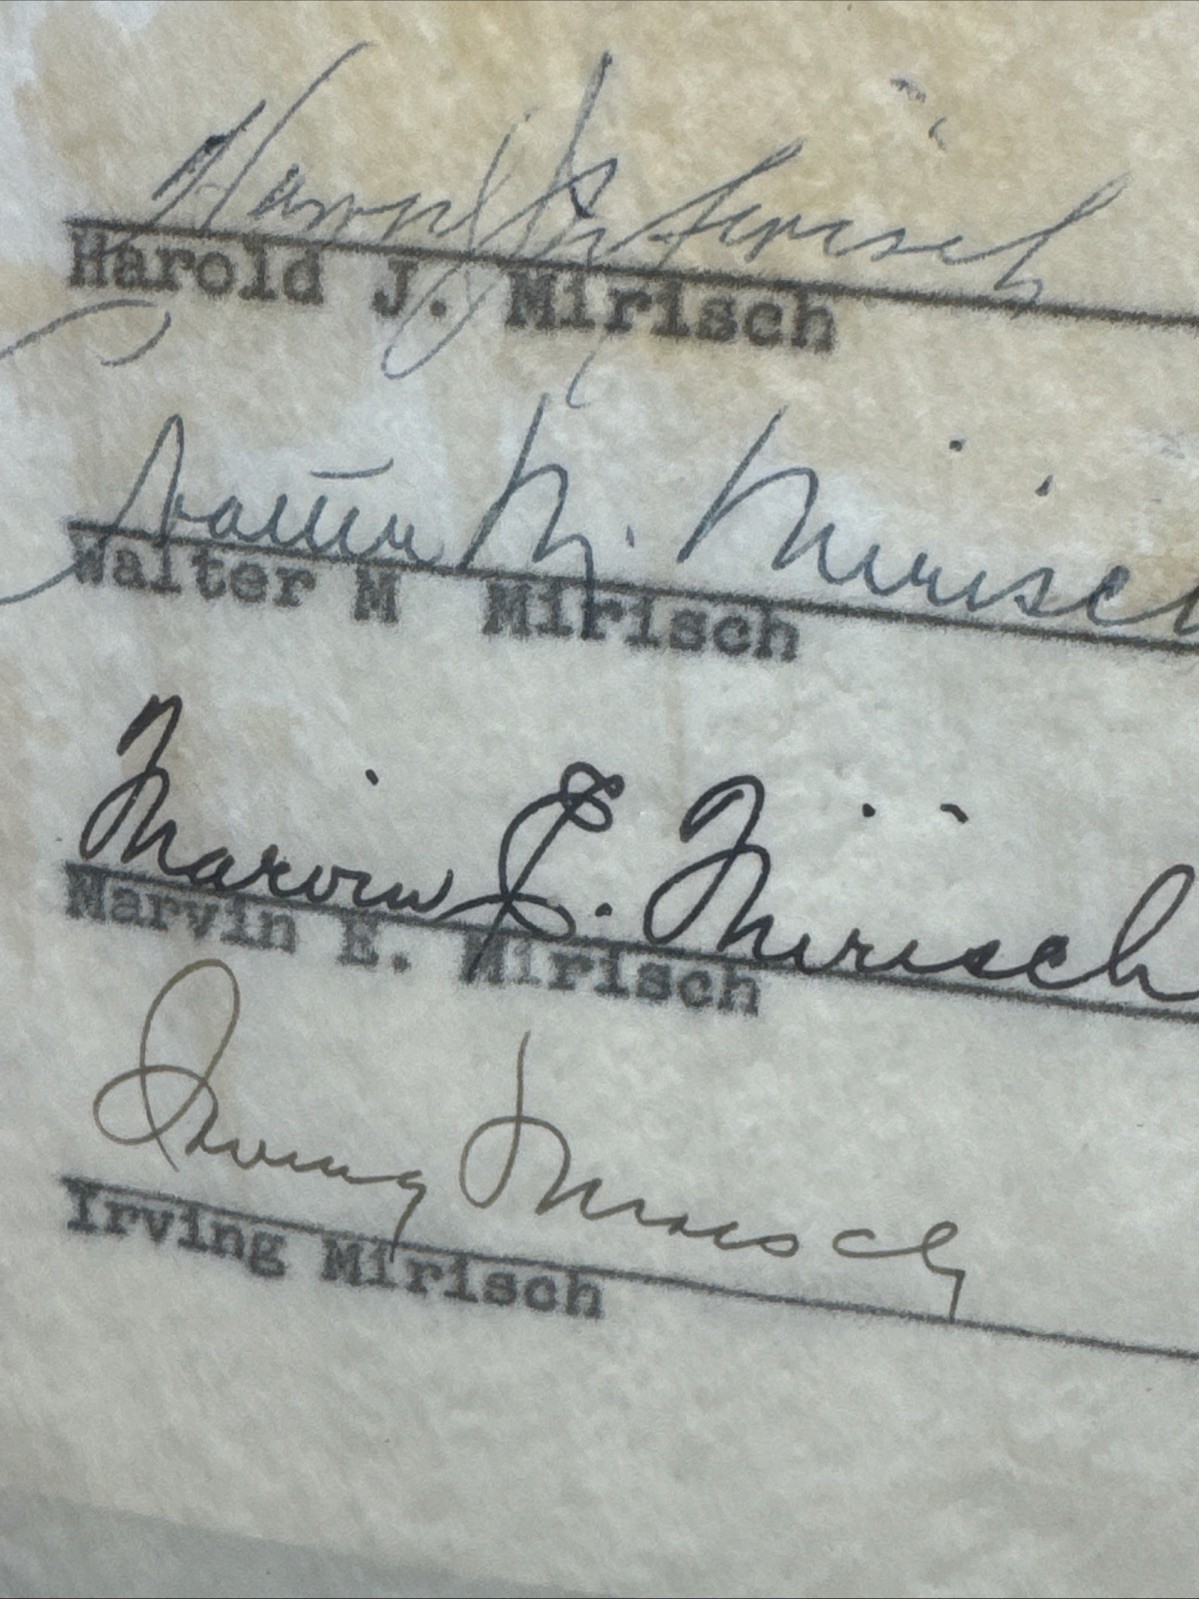 Harold J. Mirisch
Harold J. Mirisch
Walter M. Mirisch
Walter M Mirisch
Marvin E. Mirisch
Marvin E. Mirisch
Irving Mirisch
Irving Mirisch